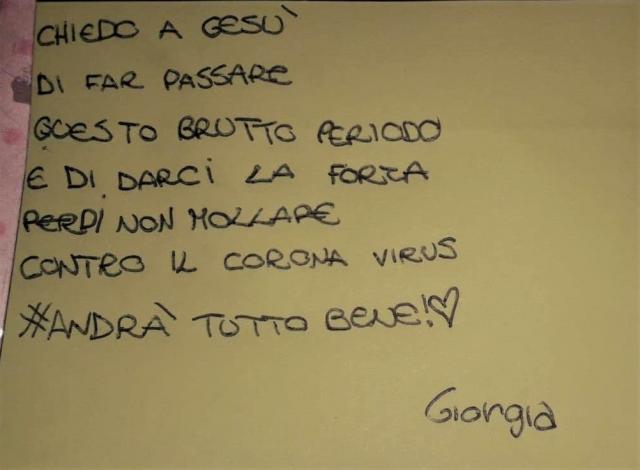 CHIEDO A GESÙ
DI FAR PASSARE
QUESTO BRUTTO PERIODO
E DI DARCI LA FORZA
PERDI NON MOLLARE
CONTRO IL CORONA VIRUS
#ANDRÀ TUTTO BENE!♡
Giorgia